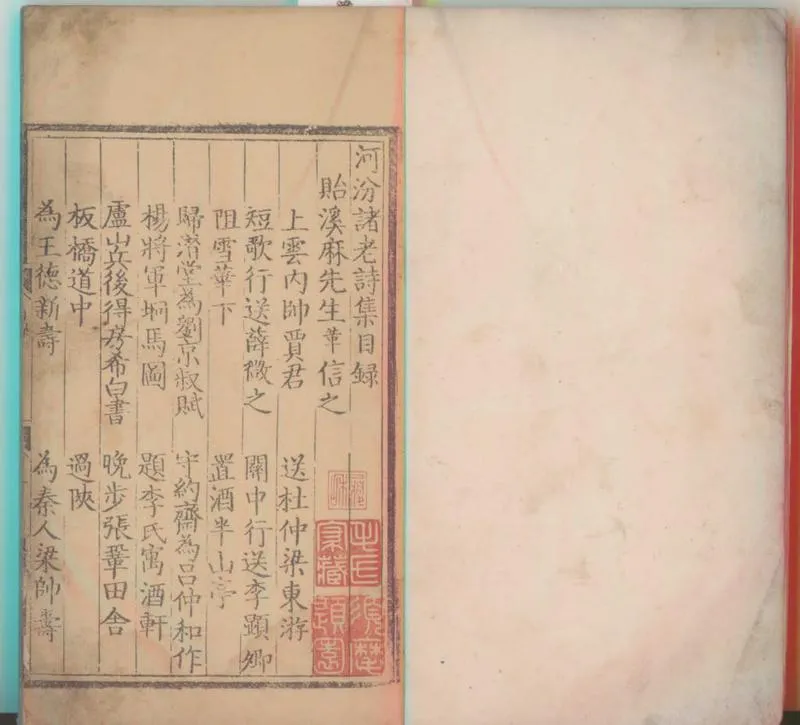 河汾諸老詩集目録
貽溪麻先生革信之
上雲内帥賈君　送杜仲梁東游
短歌行送薛微之　關中行送李顕卿
阻雪華下　置酒半山亭
歸濳堂為劉京叔賦　守約齋為吕仲和作
楊將軍垧馬圖　題李氏寓酒軒
盧山兵後得房希白書　晚步張鞏田舎
板橋道中　過陜
為王德新壽　為秦人梁帥壽